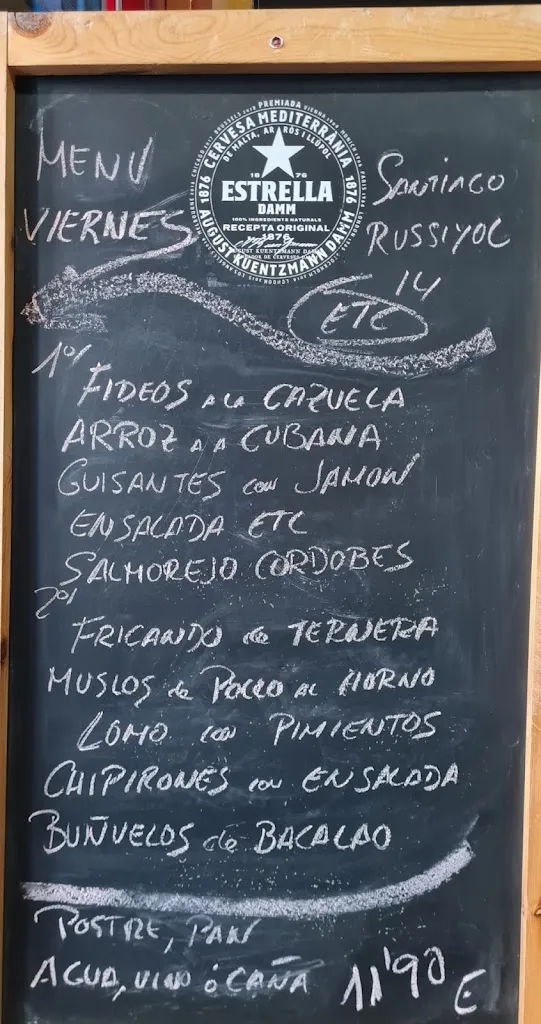 MENU
VIERNES
CERVESA MEDITERRÀNIA
DE MALTA, ARRÒS I LLÚPOL
1876
1876
AUGUST KUENTZMANN DAMM
18 76
ESTRELLA
DAMM
100% INGREDIENTS NATURALS
RECEPTA ORIGINAL
1876
SANTIAGO
RUSSIYOL
14
ETC
1º/
FIDEOS A LA CAZUELA
ARROZ A A CUBANA
GUISANTES con JAMON
ENSALADA ETC
SALMOREJO CORDOBES
2º/
FRICANDO de TERNERA
MUSLOS de POLLO AL HORNO
LOMO con PIMIENTOS
CHIPIRONES con ENSALADA
BUÑUELOS de BACALAO
POSTRE, PAN
AGUA, VINO ó CAÑA 11'90 E